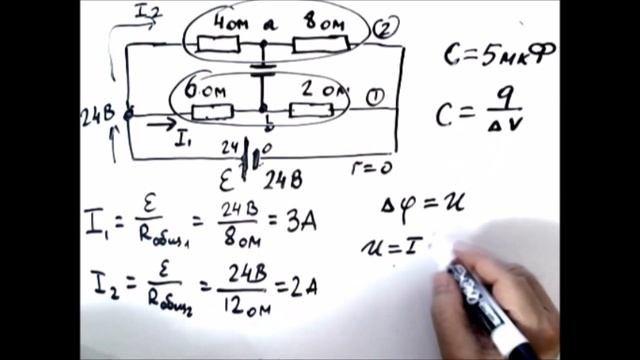 I2
4ом a 8ом ②
C=5мкФ
6ом 2ом ①
C = q / ΔV
24В
I1 b
24 0
ε 24В r=0
I1 = ε / Rобщ1 = 24В / 8ом = 3A
Δφ = U
U=I
I2 = ε / Rобщ2 = 24В / 12ом = 2A